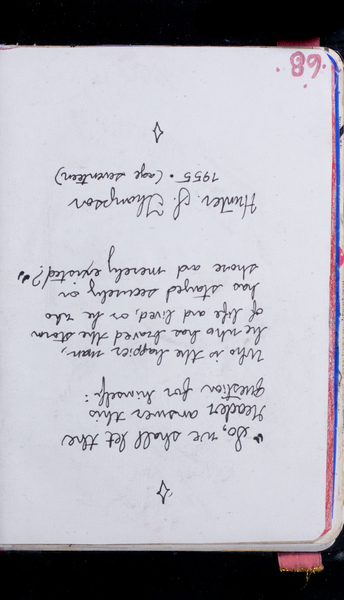 "So, we shall let the
Reader answer this
question for himself:
Who is the happier man,
he who has braved the storm
of life and lived, or he who
has stayed securely on
shore and merely existed?"
Hunter S. Thompson
1955 • (age seventeen)
.68.